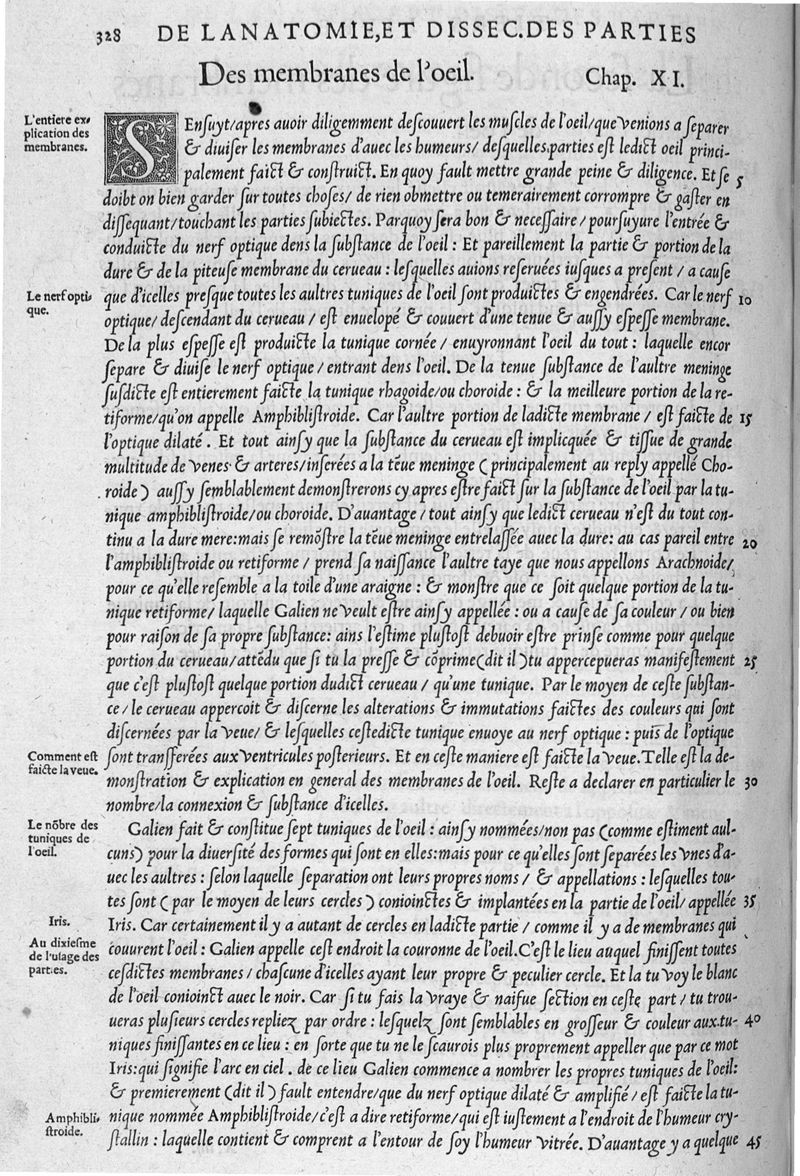 328 DE LANATOMIE, ET DISSEC. DES PARTIES
Des membranes de l'oeil. Chap. XI.
L'entiere ex-
plication des
membranes.
SEnſuyt/apres auoir diligemment deſcouuert les muſcles de l'oeil/que venions a ſeparer
& diuiſer les membranes d'auec les humeurs/ deſquelles parties est ledict oeil princi-
palement faict & construict. En quoy fault mettre grande peine & diligence. Et ſe 5
doibt on bien garder ſur toutes choſes/ de rien obmettre ou temerairement corrompre & gaster en
diſſequant/touchant les parties ſubiectes. Parquoy ſera bon & neceſſaire / pourſuyure l'entrée &
conduicte du nerf optique dens la ſubstance de l'oeil : Et pareillement la partie & portion de la
dure & de la piteuſe membrane du cerueau : leſquelles auions reſeruées iuſques a preſent / a cauſe
Le nerf opti-
que.
que d'icelles preſque toutes les aultres tuniques de l'oeil ſont produictes & engendrées. Car le nerf 10
optique/ deſcendant du cerueau / est enuelopé & couuert d'une tenue & auſſy eſpeſſe membrane.
De la plus eſpeſſe est produicte la tunique cornée / enuyronnant l'oeil du tout : laquelle encor
ſepare & diuiſe le nerf optique / entrant dens l'oeil. De la tenue ſubstance de l'aultre meninge
ſuſdicte est entierement faicte la tunique rhagoide/ou choroide : & la meilleure portion de la re-
tiforme/qu'on appelle Amphiblistroide. Car l'aultre portion de ladicte membrane / est faicte de 15
l'optique dilaté . Et tout ainſy que la ſubstance du cerueau est implicquée & tiſſue de grande
multitude de venes & arteres/inſerées a la tẽue meninge ( principalement au reply appellé Cho-
roide ) auſſy ſemblablement demonstrerons cy apres estre faict ſur la ſubstance de l'oeil par la tu-
nique amphiblistroide/ou choroide. D'auantage / tout ainſy que ledict cerueau n'est du tout con-
tinu a la dure mere:mais ſe remõstre la tẽue meninge entrelaſſée auec la dure: au cas pareil entre 20
l'amphiblistroide ou retiforme / prend ſa naiſſance l'aultre taye que nous appellons Arachnoide/
pour ce qu'elle reſemble a la toile d'une araigne : & monstre que ce ſoit quelque portion de la tu-
nique retiforme/ laquelle Galien ne veult estre ainſy appellée : ou a cauſe de ſa couleur / ou bien
pour raiſon de ſa propre ſubstance: ains l'estime plustost debuoir estre prinſe comme pour quelque
portion du cerueau/attẽdu que ſi tu la preſſe & cõprime(dit il)tu appercepueras manifestement 25
que c'est plustost quelque portion dudict cerueau / qu'une tunique. Par le moyen de ceste ſubstan-
ce / le cerueau appercoit & diſcerne les alterations & immutations faictes des couleurs qui ſont
diſcernées par la veue/ & leſquelles cestedicte tunique enuoye au nerf optique : puis de l'optique
Comment est
faicte la veue.
ſont transferées aux ventricules posterieurs. Et en ceste maniere est faicte la veue. Telle est la de-
monstration & explication en general des membranes de l'oeil. Reste a declarer en particulier le 30
nombre/la connexion & ſubstance d'icelles.
Le nõbre des
tuniques de
l'oeil.
Galien fait & constitue ſept tuniques de l'oeil : ainſy nommées/non pas (comme estiment aul-
cuns) pour la diuerſité des formes qui ſont en elles:mais pour ce qu'elles ſont ſeparées les vnes d'a-
uec les aultres : ſelon laquelle ſeparation ont leurs propres noms / & appellations : leſquelles tou-
tes ſont ( par le moyen de leurs cercles ) conioinctes & implantées en la partie de l'oeil/ appellée 35
Iris.
Iris. Car certainement il y a autant de cercles en ladicte partie / comme il y a de membranes qui
Au dixieſme
de l'uſage des
parties.
couurent l'oeil : Galien appelle cest endroit la couronne de l'oeil.C'est le lieu auquel finiſſent toutes
ceſdictes membranes / chaſcune d'icelles ayant leur propre & peculier cercle. Et la tu voy le blanc
de l'oeil conioinct auec le noir. Car ſi tu fais la vraye & naifue ſection en ceste part / tu trou-
ueras pluſieurs cercles repliez par ordre : leſquelz ſont ſemblables en groſſeur & couleur aux tu- 40
niques finiſſantes en ce lieu : en ſorte que tu ne le ſcaurois plus proprement appeller que par ce mot
Iris:qui ſignifie l'arc en ciel . de ce lieu Galien commence a nombrer les propres tuniques de l'oeil:
& premierement (dit il ) fault entendre/que du nerf optique dilaté & amplifié / est faicte la tu-
Amphibli-
stroide.
nique nommée Amphiblistroide/c'est a dire retiforme/qui est iustement a l'endroit de l'humeur cry-
stallin : laquelle contient & comprent a l'entour de ſoy l'humeur vitrée. D'auantage y a quelque 45